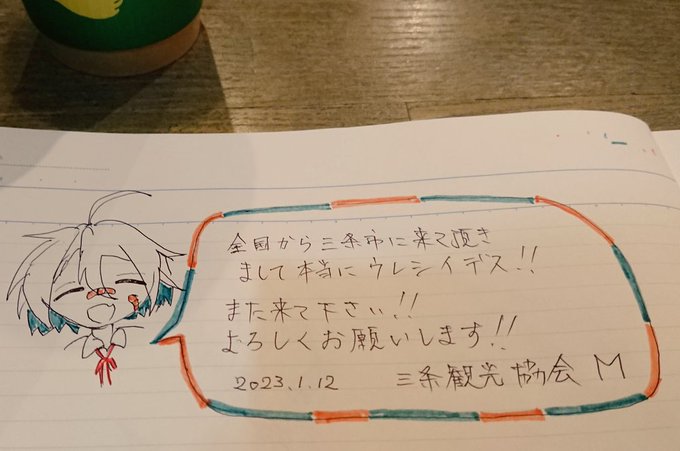 全国から三条市に来て頂き
まして本当にウレシイデス!!
また来て下さい!!
よろしくお願いします!!
2023.1.12 三条観光協会 M